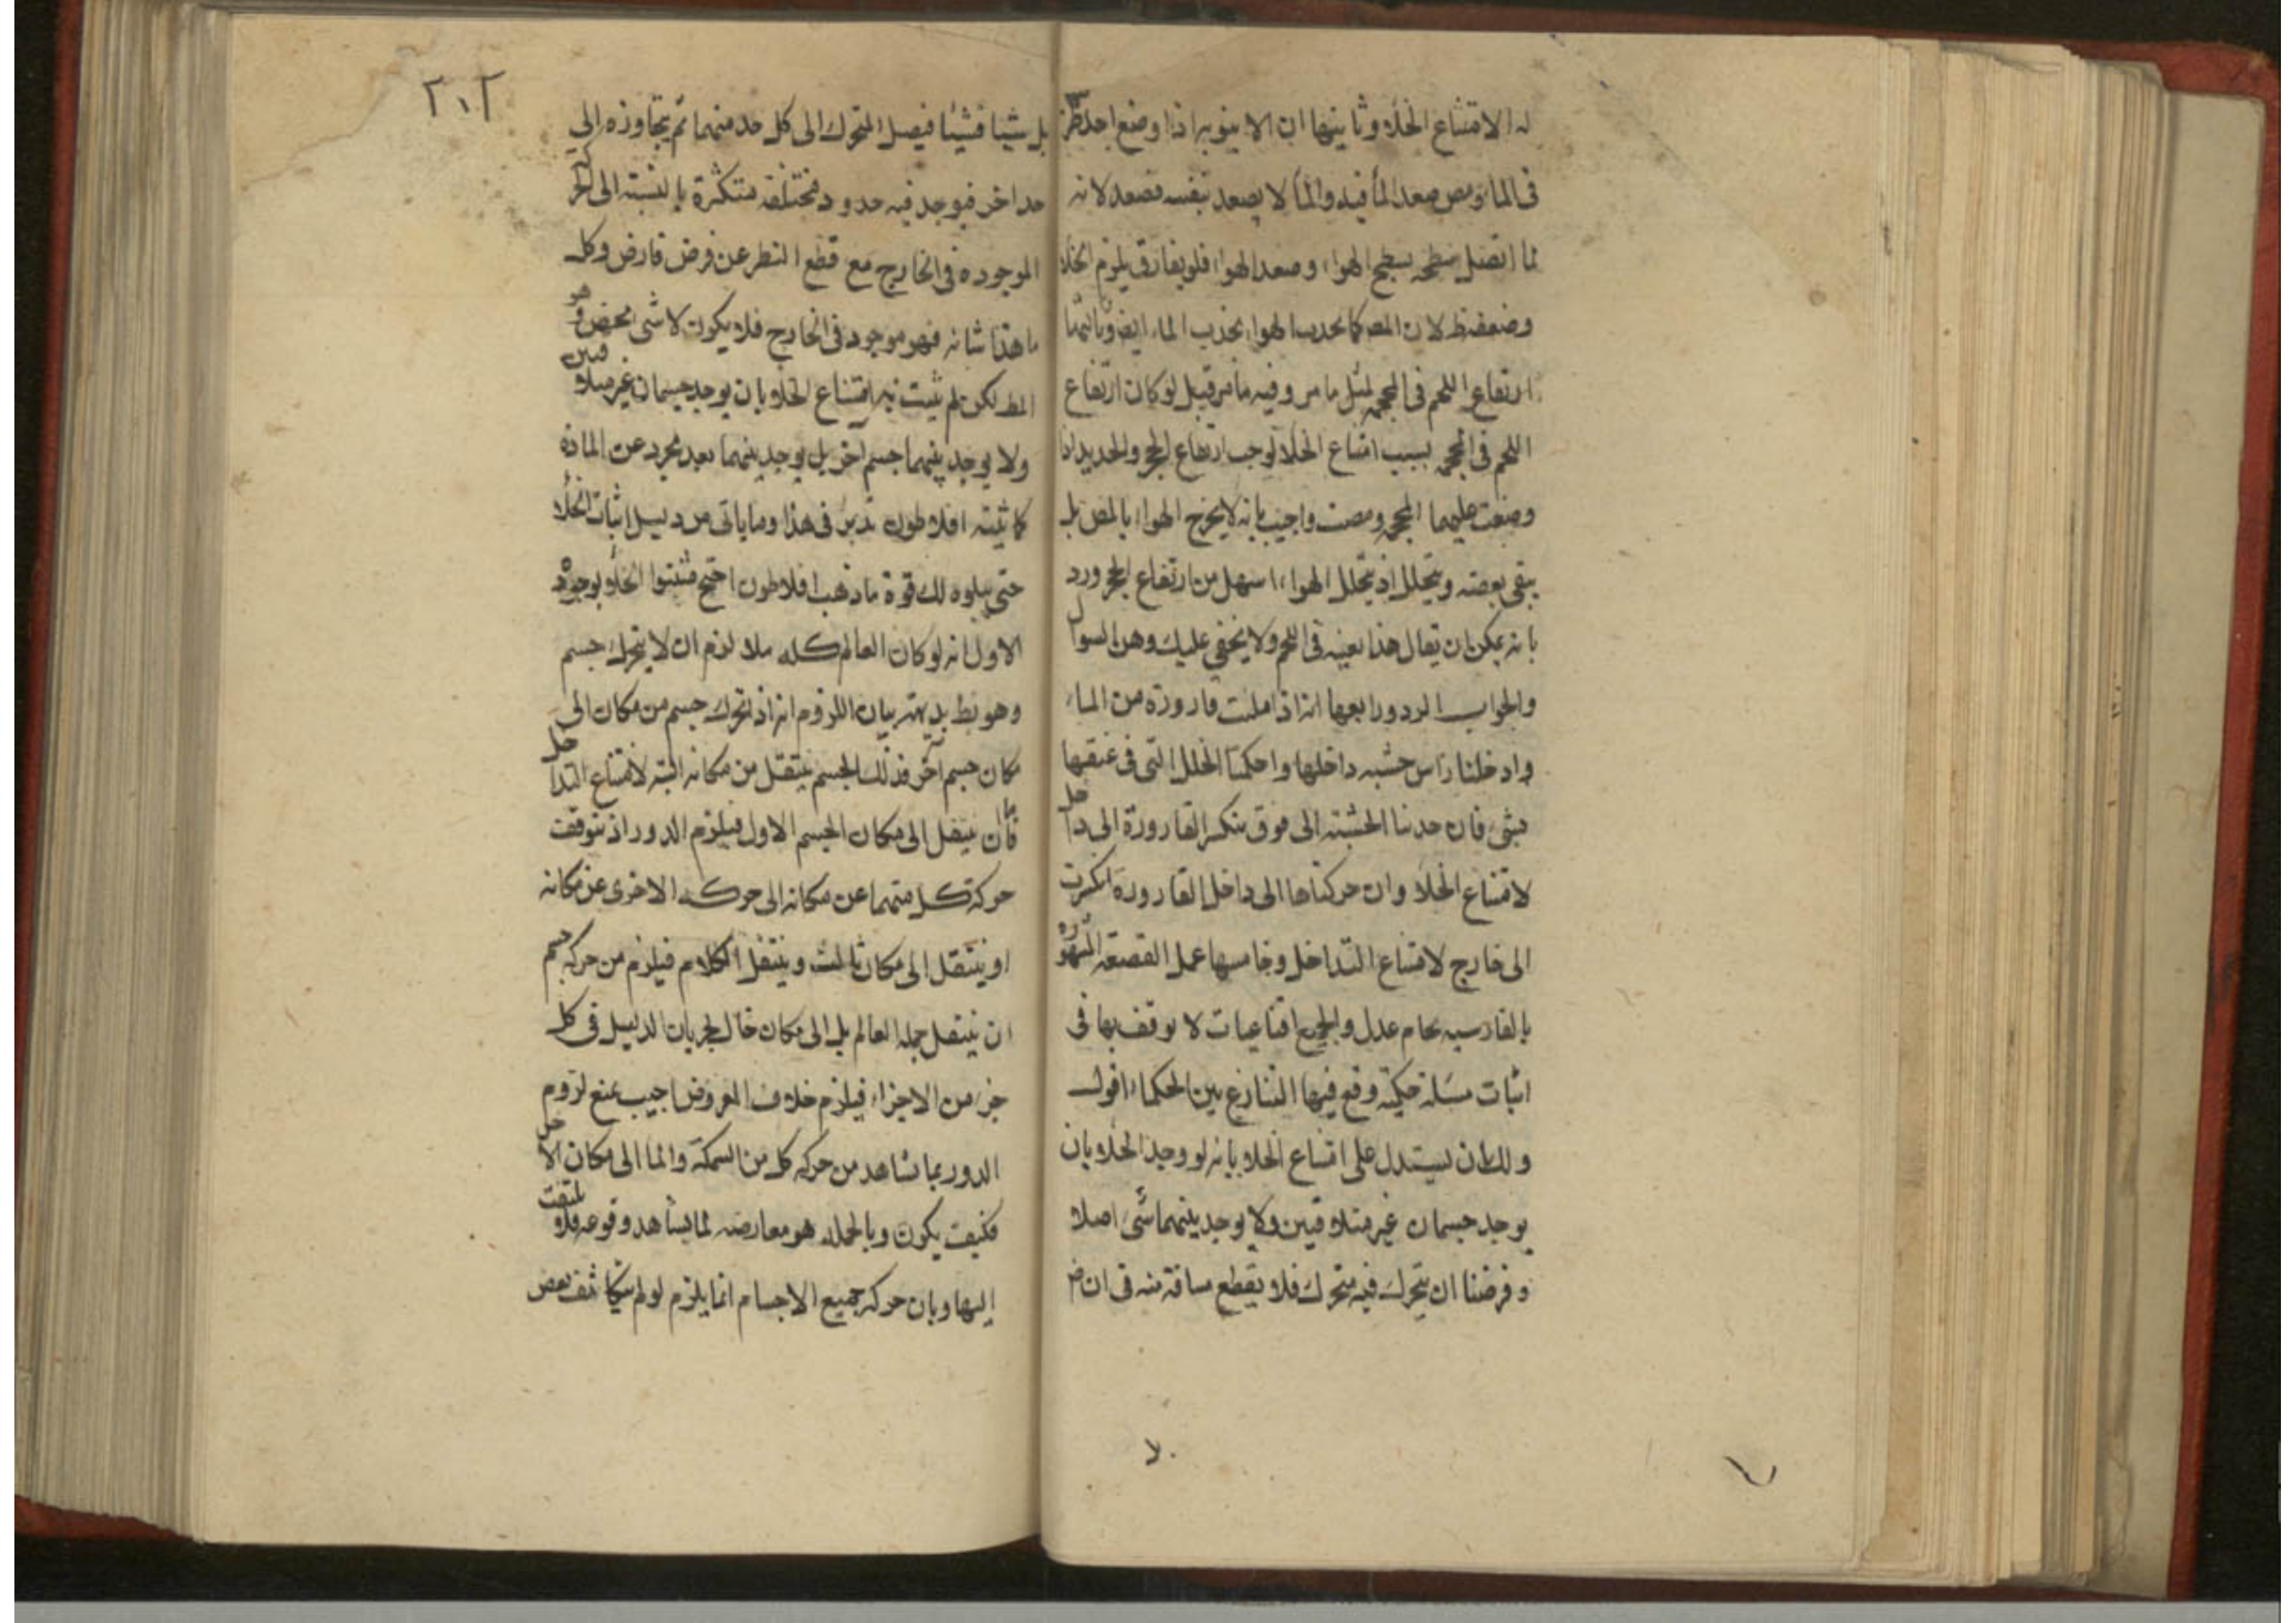 له الا امتناع الخلاء وثانيتها ان الانبوبه اذا وضع احد طرفيه
فى الماء ومص صعد الماء فيه والماء لا يصعد بنفسه فصعد لانه
لما اتصل سطحه بسطح الهواء وصعد الهواء فلو يفارق يلزم الخلا
وضعفه ظ لان المص كما يجذب الهواء يجذب الماء ايض وثالثها
ارتفاع اللحم فى المحجمه لمثل ما مر وفيه ما مر قيل لو كان ارتفاع
اللحم فى المحجمه بسبب امتناع الخلا لوجب ارتفاع الحجر والحديد اذا
وضعت عليهما المحجمه ومصت واجيب بانه لا يخرج الهواء بالمص بل
يبقى بعضه ويتخلل اذ تخلل الهواء اسهل من ارتفاع الحجر ورد
بانه يمكن ان يقال هذا بعينه فى اللحم ولا يخفى عليك وهن السوال
والجواب الرد ورابعها انه اذا املئت قاروره من الماء
وادخلنا راس خشبه داخلها واحكمنا الخلل التى فى عنقها
بشئ فان جذبنا الخشبه الى فوق ينكسر القارورة الى داخل
لامتناع الخلاء وان حركناها الى داخل القارورة انكسرت
الى خارج لامتناع التداخل وخامسها عمل القصعة المشهوره
بالفارسيه بجام عدل والجميع اقناعيات لا يوقف بها فى
اثبات مسئلة حكمية وقع فيها التنازع بين الحكماء اقول
ولك ان يستدل على امتناع الخلاء بانه لو وجد الخلاء بان
يوجد جسمان غير متلاقيين ولا يوجد بينهما شئ اصلا
وفرضنا ان يتحرك فيه متحرك فلا يقطع مسافة منه فى ان
٢٠٢
بل شيئا فشيئا فيصل المتحرك الى كل حد منهما ثم يتجاوزه الى
حد اخر فيوجد فيه حدود مختلفه متكثرة بالنسبة الى
الموجوده فى الخارج مع قطع النظر عن فرض فارض وكل
ما هذا شانه فهو موجود فى الخارج فلا يكون لا شئ محض وهو
المط لكن لم يثبت به امتناع الخلاء بان يوجد جسمان غير متلاقيين
ولا يوجد بينهما جسم اخر بل يوجد بينهما بعد مجرد عن المادة
كما يثبته افلاطون تدبر فى هذا وما ياتى من دليل اثبات الخلا
حتى يبلوه لك قوة ما ذهب افلاطون احتج مثبتوا الخلاء بوجوه
الاول انه لو كان العالم كله ملا لزم ان لا يتحرك جسم
وهو بط بديهة بيان اللزوم انه اذا تحرك جسم من مكان الى
مكان جسم آخر فذلك الجسم ينتقل من مكانه البته لامتناع التداخل
فاما ان ينتقل الى مكان الجسم الاول فيلزم الدور اذ يتوقف
حركة كل منهما عن مكانه الى حركة الاخرى عن مكانه
او ينتقل الى مكان ثالث وينتقل الكلام فيلزم من حركه جسم
ان ينتقل جمله العالم بل الى مكان خال لجريان الدليل فى كل
جزء من الاجزاء فيلزم خلاف المفروض اجيب بمنع لزوم
الدور بما نشاهد من حركه كل من السمكة والماء الى مكان الاخر
فكيف يكون وبالجمله هو معارضه لما يشاهد وقوعه فلا يلتفت
اليها وبان حركه جميع الاجسام انما يلزم لو لم يتكاثف بعض